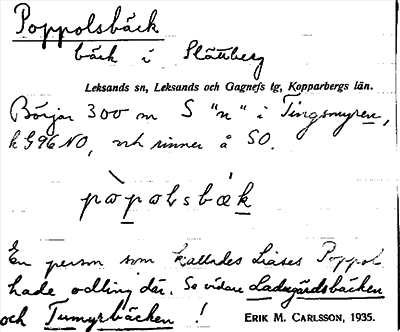 Poppolsbäck
bäck i Slättberg
Leksands sn, Leksands och Gagnefs tg, Kopparbergs län.
Börjar 300 m S "n" i Tingsmyren,
k G96 NO, och rinner å SO.
En person som kallades Liases Poppol
hade odling där. Se vidare Ladugårdsbäcken
och Tumyrbäcken !
ERIK M. CARLSSON, 1935.